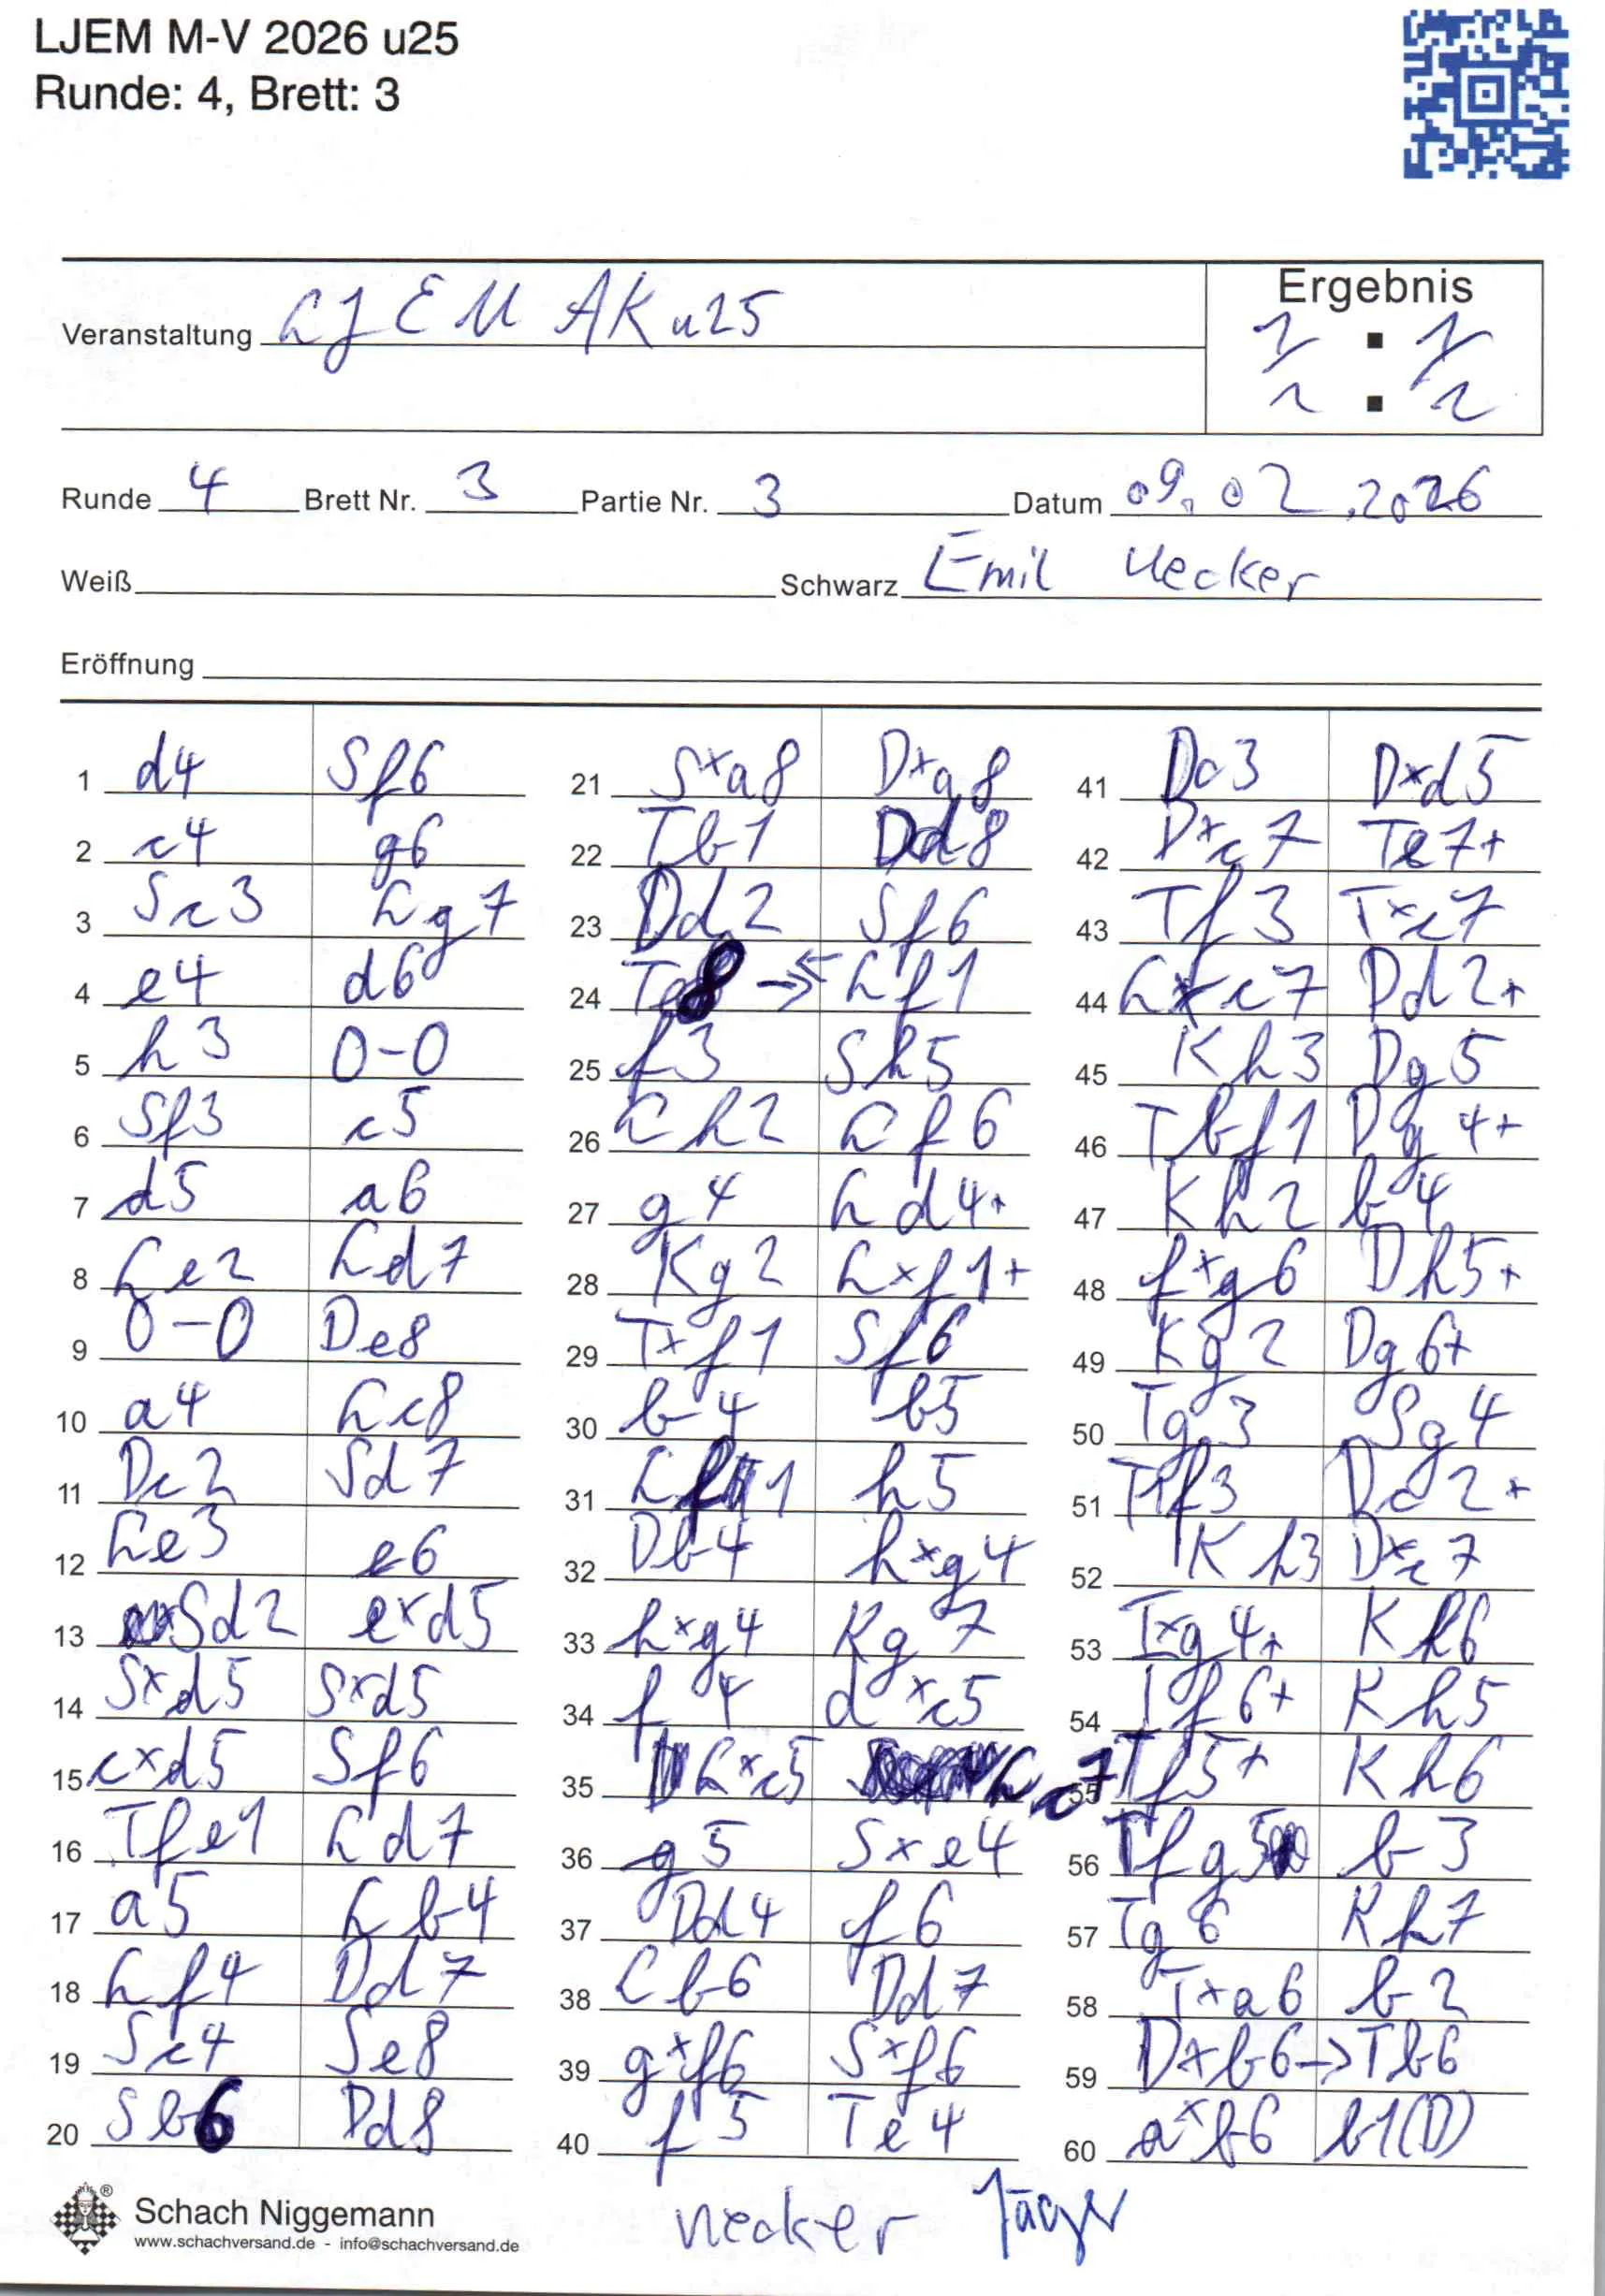 LJEM M-V 2026 u25
Runde: 4, Brett: 3
Veranstaltung LJEM AK u25
Ergebnis
1/2 : 1/2
Runde 4 Brett Nr. 3 Partie Nr. 3 Datum 09.02.2026
Weiß Schwarz Emil Uecker
Eröffnung
1 d4 Sf6
2 c4 g6
3 Sc3 Lg7
4 e4 d6
5 h3 0-0
6 Sf3 c5
7 d5 a6
8 Le2 Ld7
9 0-0 De8
10 a4 Lc8
11 Dc2 Sd7
12 Le3 e6
13 Sd2 exd5
14 Sxd5 Sxd5
15 cxd5 Sf6
16 Tfe1 Ld7
17 a5 Lb4
18 Lf4 Dd7
19 Sc4 Se8
20 Sb6 Dd8
21 Sxa8 Dxa8
22 Tb1 Dd8
23 Dd2 Sf6
24 Te8 → Lf1
25 f3 Sh5
26 Lh2 Lf6
27 g4 Ld4+
28 Kg2 Lxf1+
29 Txf1 Sf6
30 b4 b5
31 L 1 h5
32 Db4 hxg4
33 hxg4 Kg7
34 f4 dxc5
35 Lxc5 Lc7
36 g5 Sxe4
37 Dd4 f6
38 Lb6 Dd7
39 gxf6 Sxf6
40 f5 Te4
41 Dc3 Dxd5
42 Dxc7 Te7+
43 Tf3 Txc7
44 Lxc7 Dd2+
45 Kh3 Dg5
46 Tbf1 Dg4+
47 Kh2 b4
48 fxg6 Dh5+
49 Kg2 Dg6+
50 Tg3 Sg4
51 T1f3 Dc2+
52 Kh3 Dxc7
53 Txg4+ Kh6
54 Tf6+ Kh5
55 Tf5+ Kh6
56 Tfg5 b3
57 Tg6 Kh7
58 Txa6 b2
59 Dxb6→Tb6
60 axb6 b1(D)
Schach Niggemann
www.schachversand.de - info@schachversand.de
Uecker Jäger